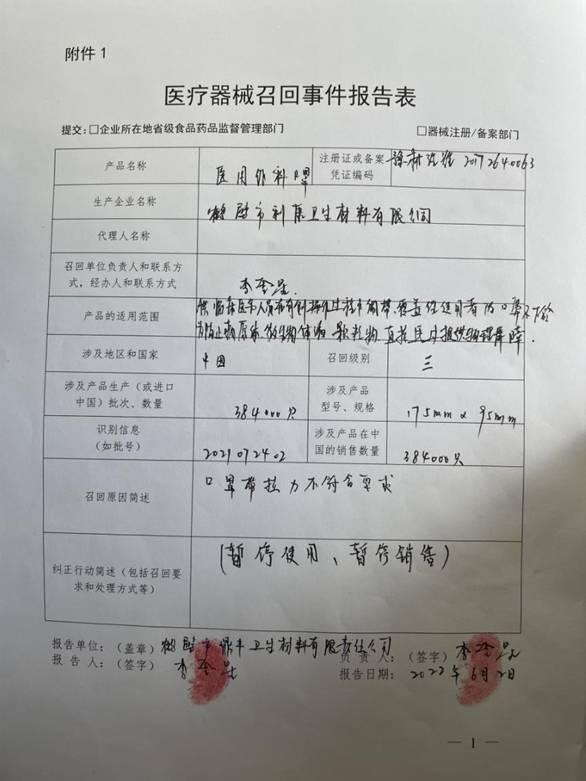 附件 1
医疗器械召回事件报告表
提交：□企业所在地省级食品药品监督管理部门 □器械注册/备案部门
产品名称 医用外科 注册证或备案凭证编码 2017 2640063
生产企业名称 市利康卫生材料有限公司
代理人名称
召回单位负责人和联系方式，经办人和联系方式 李奎
产品的适用范围 供临床医务人员在有创操作过程中佩带，覆盖住使用者的口鼻及下颌
防止病原体微生物体液 颗粒物 直接透过提供物理屏障.
涉及地区和国家 中国 召回级别 三
涉及产品生产（或进口中国）批次、数量 384000只 涉及产品型号、规格 175mm × 95mm
识别信息（如批号） 2021072402 涉及产品在中国的销售数量 384000只
召回原因简述 口罩带拉力不符合要求
纠正行动简述（包括召回要求和处理方式等） (暂停使用、暂停销售)
报告单位：（盖章） 市 卫生材料有限责任公司
负责人：（签字） 李奎
报告人：（签字） 李奎
报告日期： 2022年6月2日
— 1 —